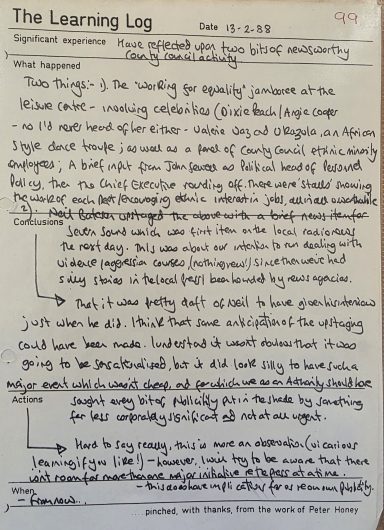 The Learning Log
Date 13-2-88
99
Significant experience Have reflected upon two bits of newsworthy
County Council activity
What happened
Two things:- 1). The "working for equality" jamboree at the
leisure centre - involving celebrities (Dixie Peach / Angie Cooper
- no I'd never heard of her either - Valerie Vaz and Ukazula, an African
style dance troupe; as well as a panel of County Council ethnic minority
employees; A brief input from John as Political head of Personnel
Policy, then the Chief Executive rounding off. There were 'stalls' showing
the work of each Dept / encouraging ethnic interest in jobs,
2). Neil upstaged the above with a brief news item for
Severn Sound which was first item on the local radio news
the next day. This was about our intention to run dealing with
violence/aggression courses (nothing new!) since then we've had
silly stories in the local press / been hounded by news agencies.
Conclusions
That it was pretty daft of Neil to have given his interview
just when he did. I think that some anticipation of the upstaging
could have been made. I understand it wasn't obvious that it was
going to be sensationalised, but it did look silly to have such a
major event which wasn't cheap, and for which we as an Authority should have
sought every bit of publicity put in the shade by something
far less corporately significant and not at all urgent.
Actions
Hard to say really, this is more an observation (vicarious
learning if you like!) - however, I will try to be aware that there
isn't room for more than one major initiative re the press at a time.
- this does have implications for us re our own publicity.
When
- from now...
....pinched, with thanks, from the work of Peter Honey